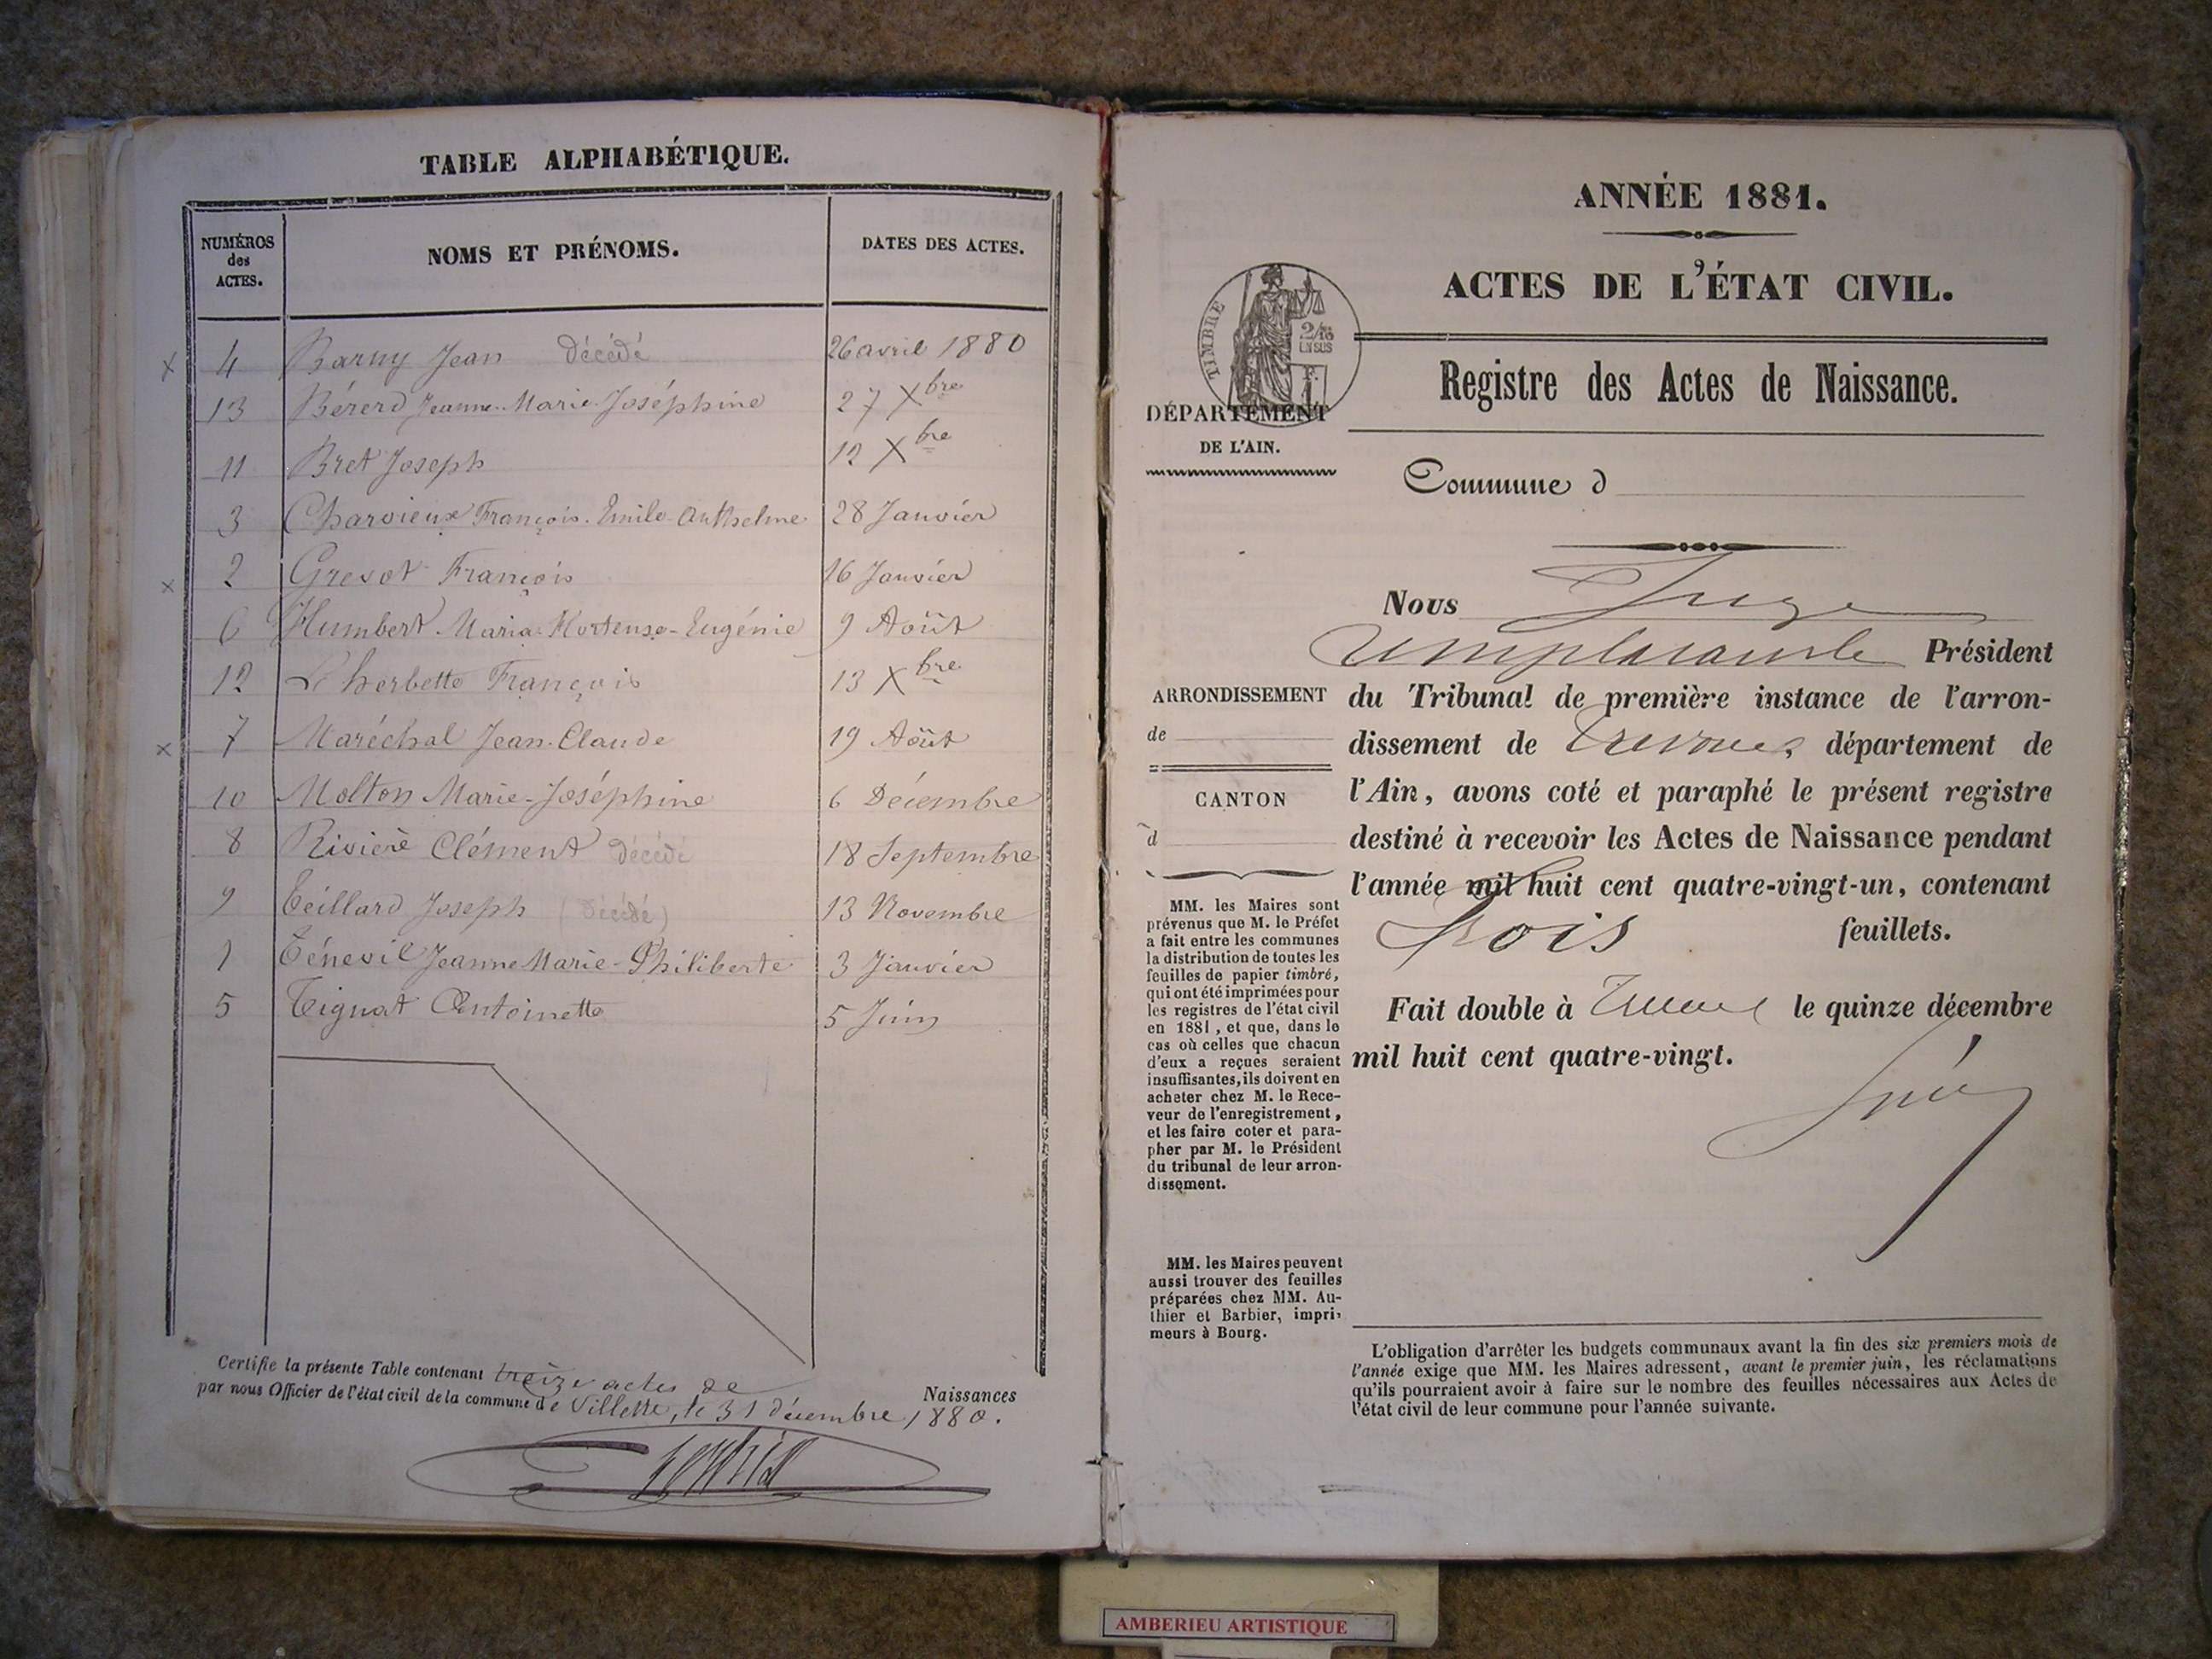 TABLE ALPHABÉTIQUE.
NUMÉROS des ACTES.
NOMS ET PRÉNOMS.
DATES DES ACTES.
x 4 Barny Jean Décédé 26 avril 1880
13 Bérerd Jeanne-Marie-Joséphine 27 Xbre
11 Bret Joseph 12 Xbre
3 Charvieux François-Emile-Anthelme 28 Janvier
x 2 François 16 Janvier
6 Humbert Maria-Hortense-Eugénie 9 Août
12 L'herbette François 13 Xbre
x 7 Maréchal Jean-Claude 19 Août
10 Molton Marie-Joséphine 6 Décembre
8 Rivière Clément Décédé 18 Septembre
9 Teillard Joseph (Décédé) 13 Novembre
1 Jeanne Marie-Philiberte 3 Janvier
5 Tignat Antoinette 5 Juin
Certifie la présente Table contenant treize actes de Naissances
par nous Officier de l'état civil de la commune de Villette, le 31 décembre 1880.
ANNÉE 1881.
ACTES DE L'ÉTAT CIVIL.
TIMBRE
2/10
EN SUS
Registre des Actes de Naissance.
DÉPARTEMENT
DE L'AIN.
Commune d
Nous Juge
Président
du Tribunal de première instance de l'arron-
dissement de Trévoux, département de
l'Ain, avons coté et paraphé le présent registre
destiné à recevoir les Actes de Naissance pendant
l'année mil huit cent quatre-vingt-un, contenant
trois feuillets.
Fait double à Trévoux le quinze décembre
mil huit cent quatre-vingt.
ARRONDISSEMENT
de
CANTON
d
MM. les Maires sont
prévenus que M. le Préfet
a fait entre les communes
la distribution de toutes les
feuilles de papier timbré,
qui ont été imprimées pour
les registres de l'état civil
en 1881, et que, dans le
cas où celles que chacun
d'eux a reçues seraient
insuffisantes, ils doivent en
acheter chez M. le Rece-
veur de l'enregistrement,
et les faire coter et para-
pher par M. le Président
du tribunal de leur arron-
dissement.
MM. les Maires peuvent
aussi trouver des feuilles
préparées chez MM. Au-
thier et Barbier, impri-
meurs à Bourg.
L'obligation d'arrêter les budgets communaux avant la fin des six premiers mois de
l'année exige que MM. les Maires adressent, avant le premier juin, les réclamations
qu'ils pourraient avoir à faire sur le nombre des feuilles nécessaires aux Actes de
l'état civil de leur commune pour l'année suivante.
AMBERIEU ARTISTIQUE